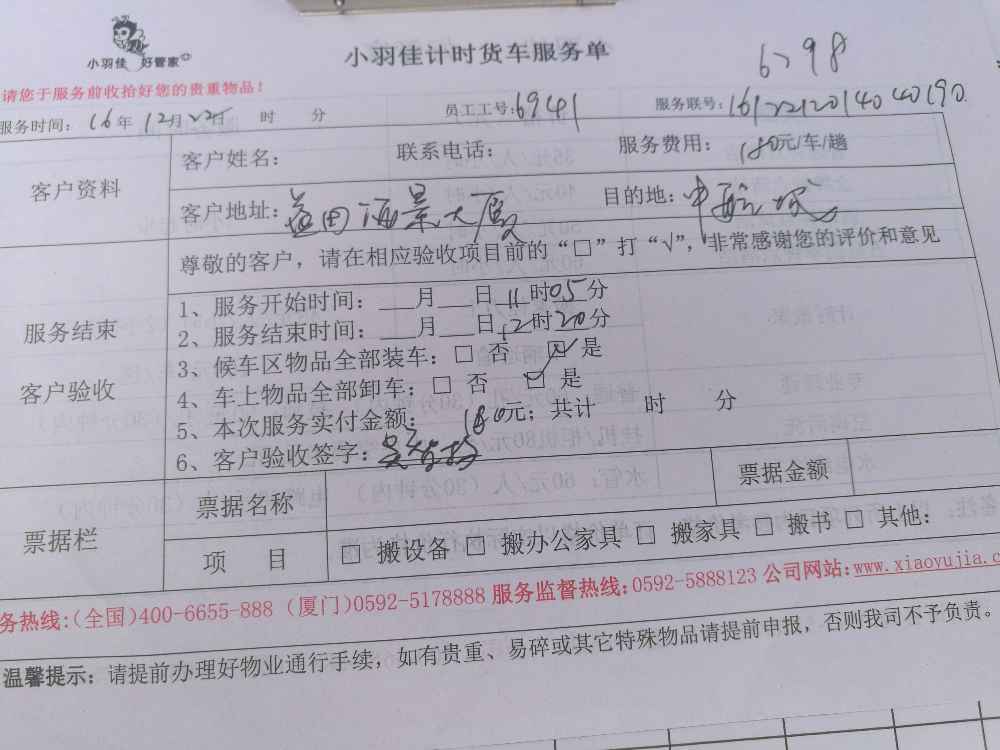 小羽佳 好管家
小羽佳计时货车服务单
6798
请您于服务前收拾好您的贵重物品！
服务时间：16年12月22日 时 分 员工工号：6941 服务联号：161221201404 0190
客户资料
客户姓名： 联系电话： 服务费用：180元/车/趟
客户地址：益田海景大厦 目的地：中航城
尊敬的客户，请在相应验收项目前的“□”打“√”，非常感谢您的评价和意见
服务结束
客户验收
1、服务开始时间：___月___日11时05分
2、服务结束时间：___月___日12时20分
3、候车区物品全部装车：□ 否 ☑ 是
4、车上物品全部卸车：□ 否 ☑ 是
5、本次服务实付金额：180元；共计 时 分
6、客户验收签字：
票据栏
票据名称 票据金额
项 目 □ 搬设备 □ 搬办公家具 □ 搬家具 □ 搬书 □ 其他：
务热线:(全国)400-6655-888 (厦门)0592-5178888 服务监督热线:0592-5888123 公司网站:www.xiaoyujia.c
温馨提示：请提前办理好物业通行手续，如有贵重、易碎或其它特殊物品请提前申报，否则我司不予负责。